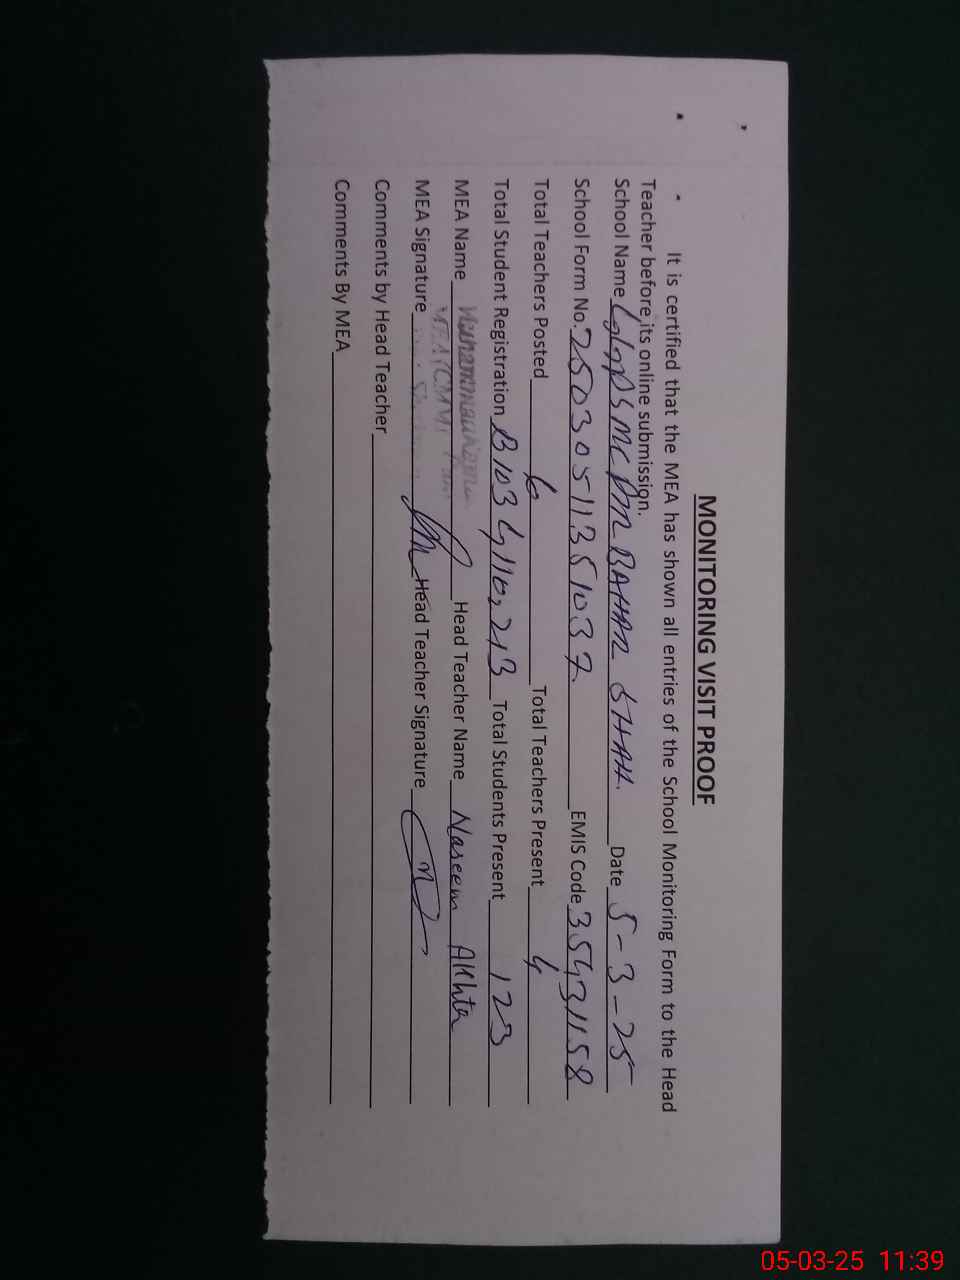 MONITORING VISIT PROOF
It is certified that the MEA has shown all entries of the School Monitoring Form to the Head
Teacher before its online submission.
School Name GGPS MC DR BAHAR SHAH. Date 5-3-25
School Form No. 2503051135 1037 EMIS Code 35431158
Total Teachers Posted 6 Total Teachers Present 4
Total Student Registration B103 G110, 213 Total Students Present 123
MEA Name Head Teacher Name Naseem Akhter
MEA Signature Head Teacher Signature
Comments by Head Teacher
Comments By MEA
05-03-25 11:39